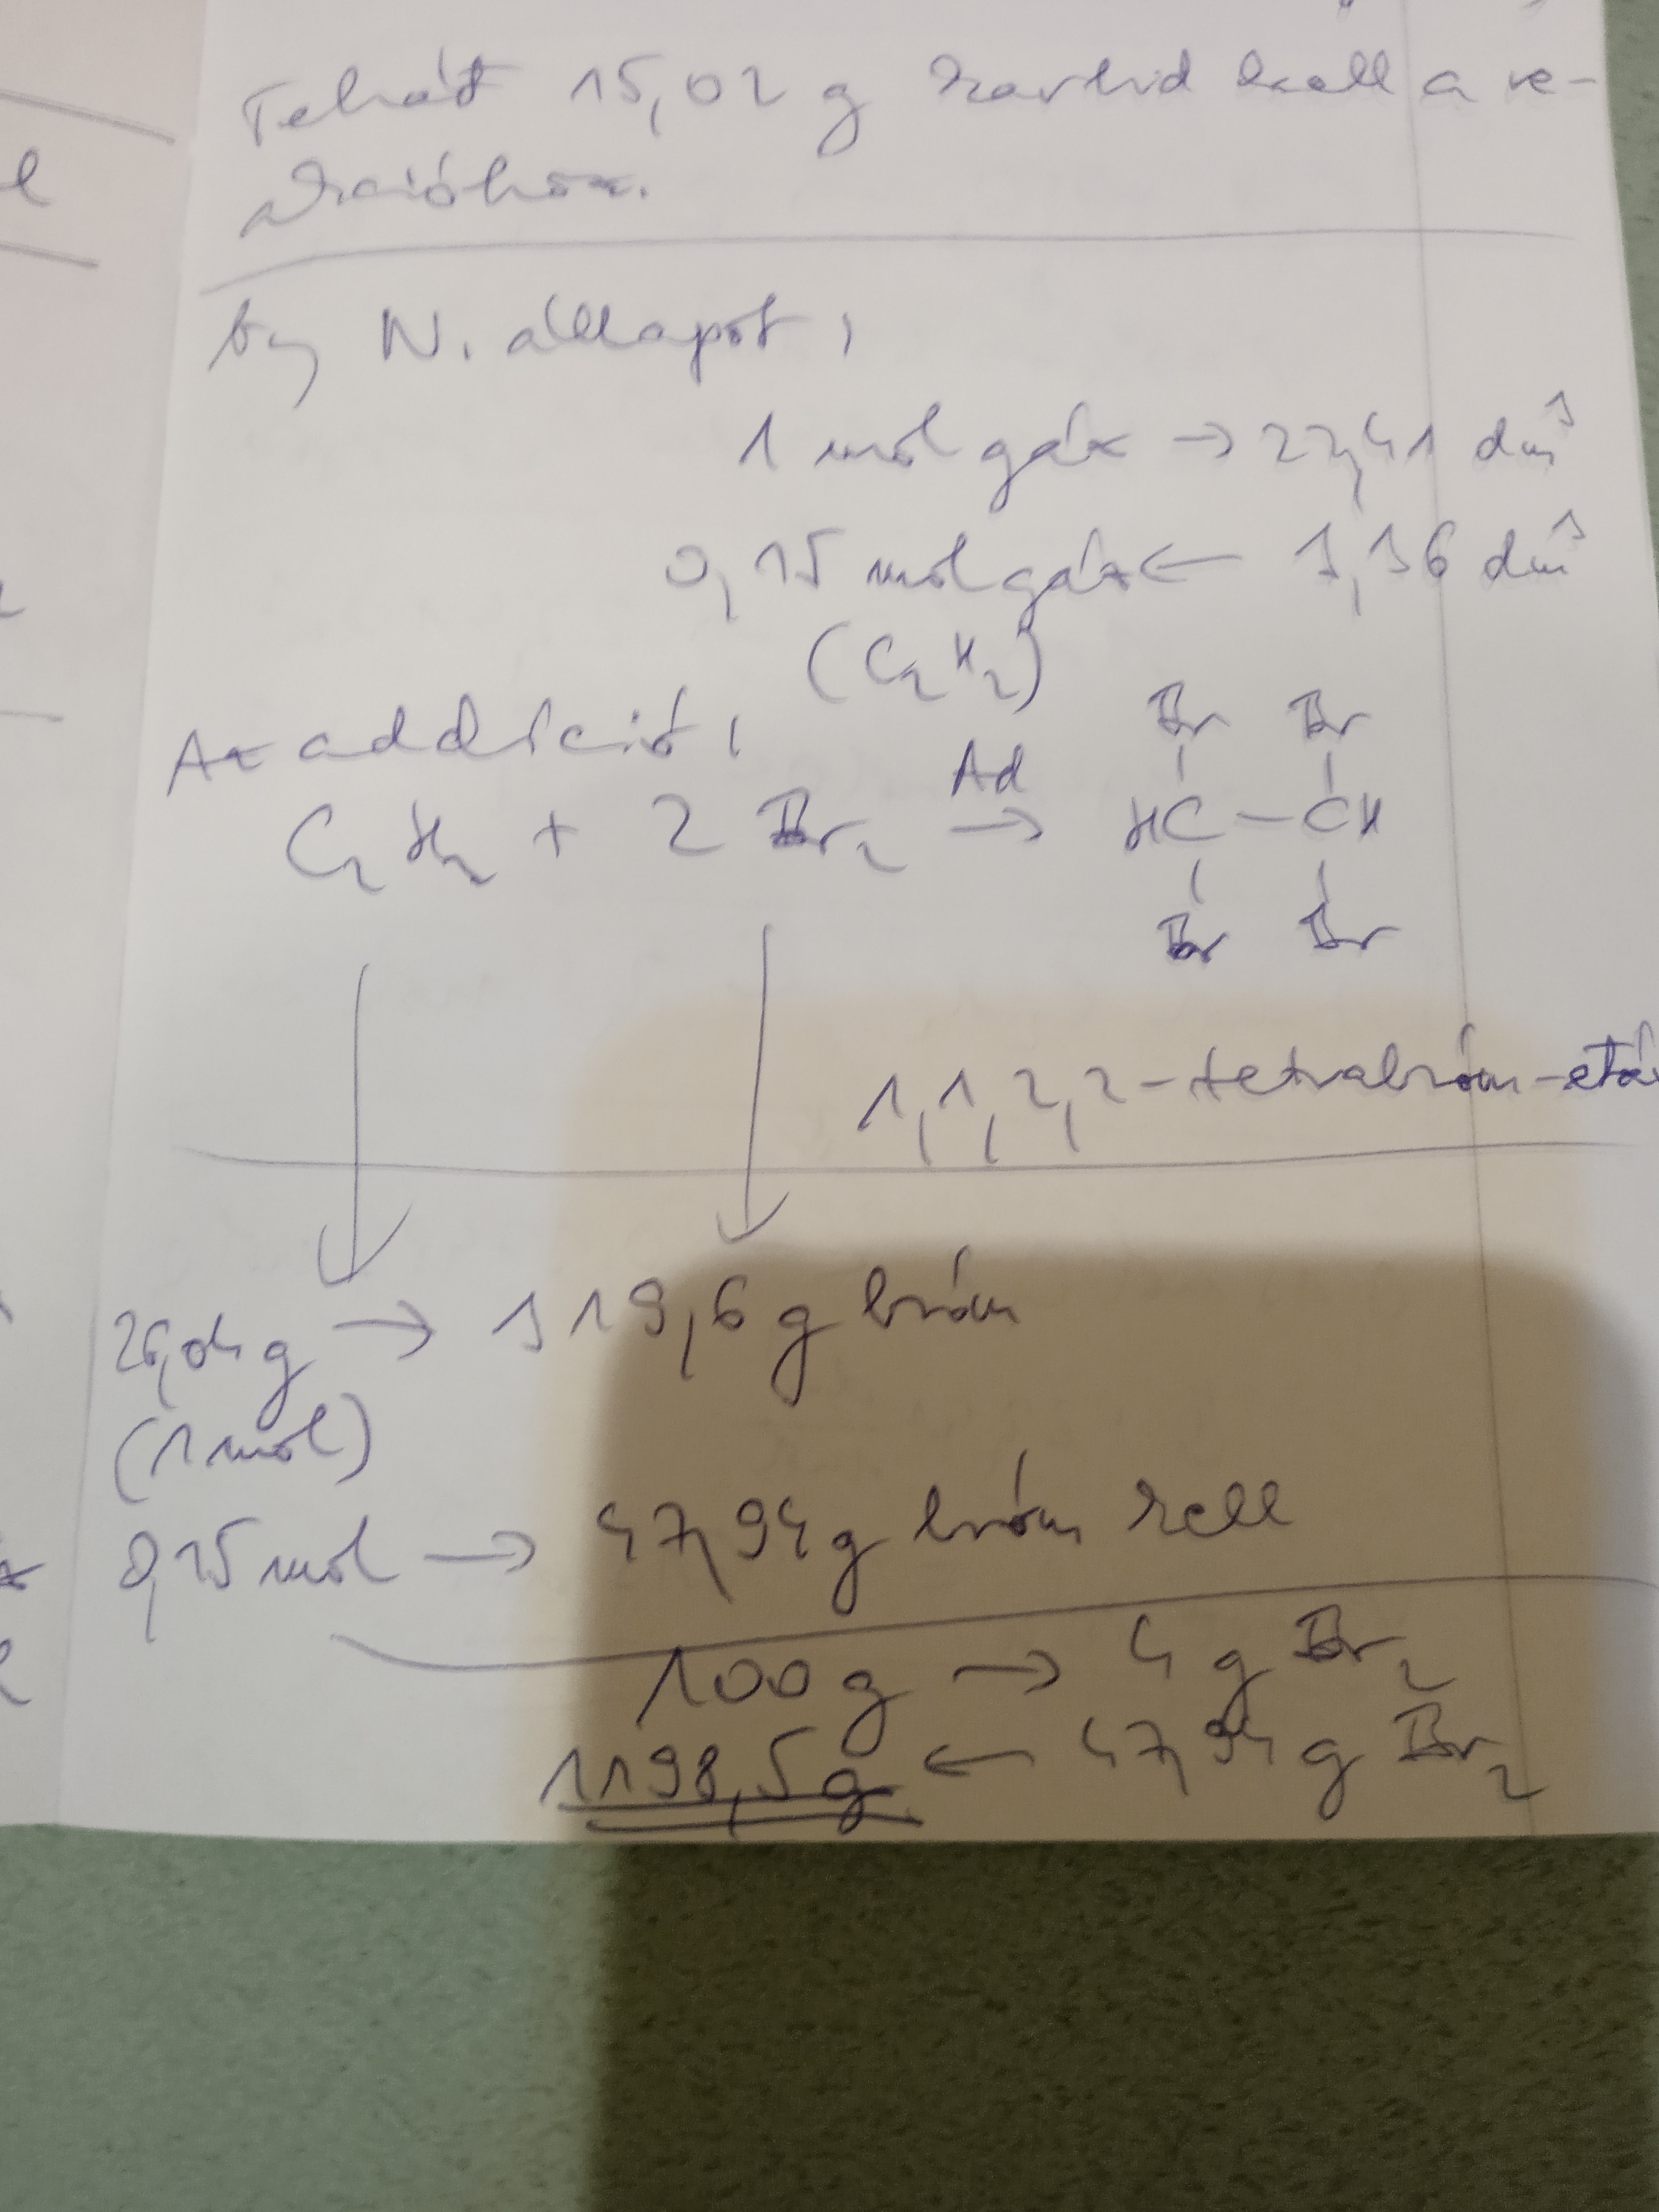 Tehát 15,02 g karbid kell a re-
akcióhoz.
b, N. állapot,
1 mol gáz → 22,41 dm³
0,15 mol gáz ← 3,36 dm³
(C₂H₂)
Az addíció,
C₂H₂ + 2 Br₂ Ad →
Br Br
HC — CH
Br Br
1,1,2,2-tetrabróm-etá
26,04 g → 319,6 g bróm
(1 mol)
0,15 mol → 47,94 g bróm kell
100 g → 4 g Br₂
1198,5 g ← 47,94 g Br₂